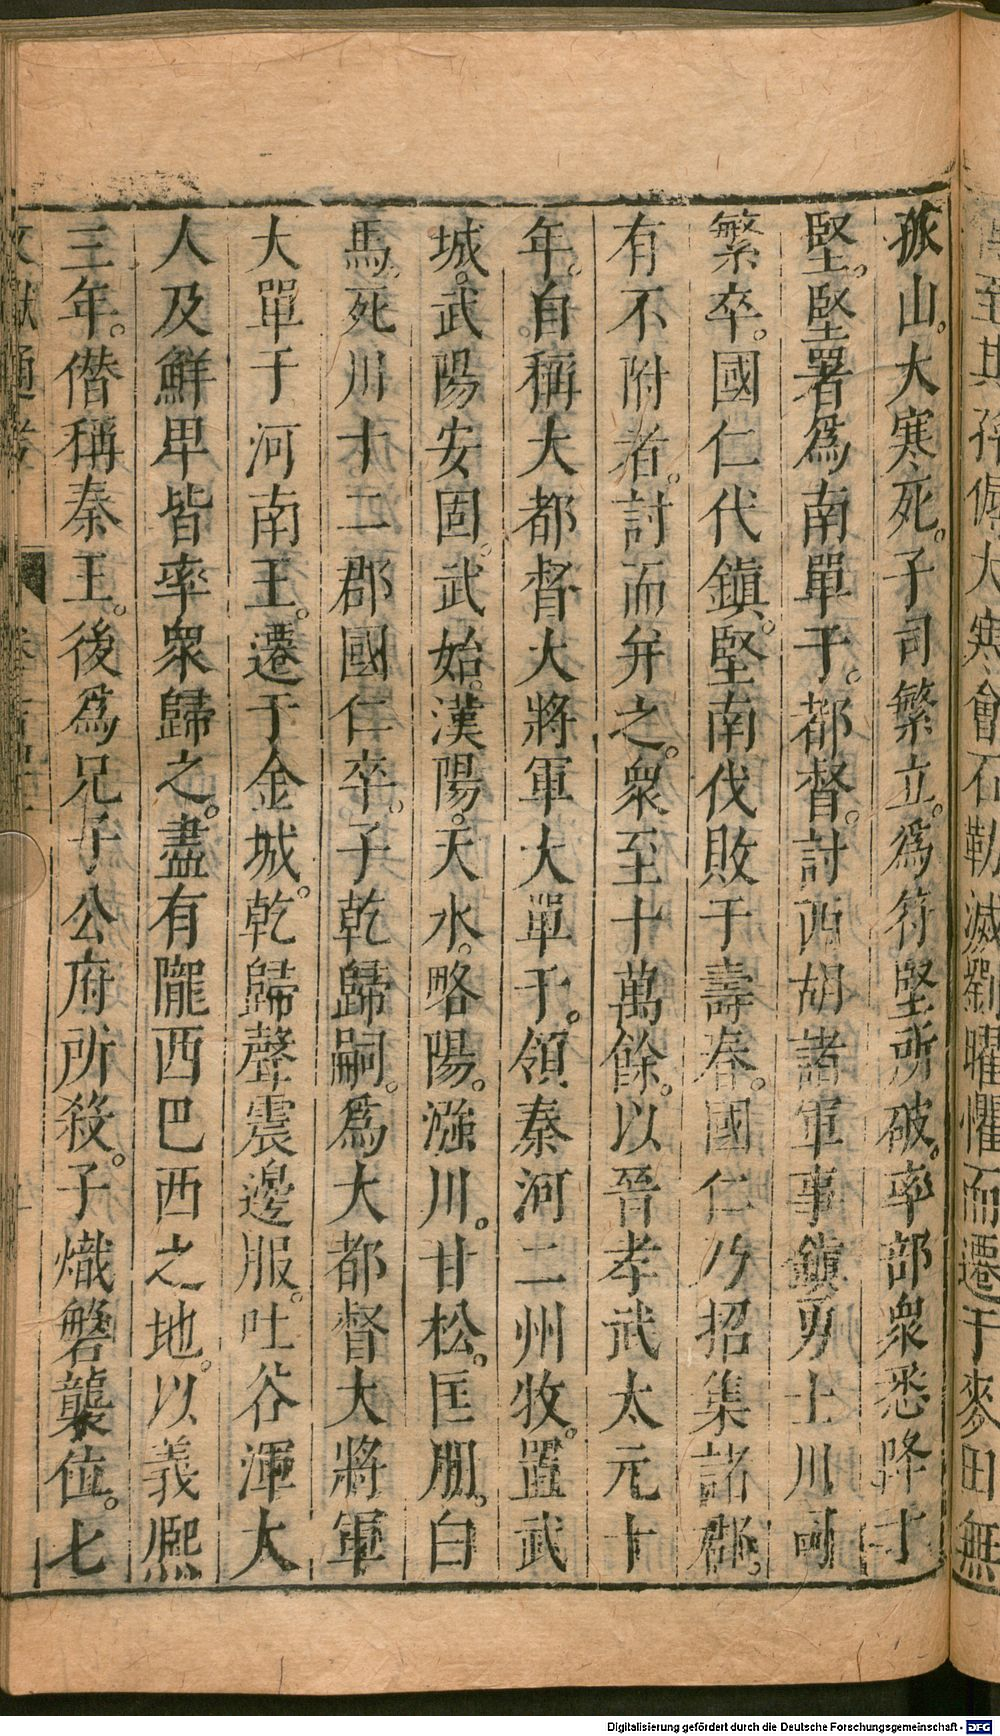 至其孫傉大寒會石勒滅劉曜懼而遷于麥田無
孤山。大寒死。子司繁立。爲符堅所破。率部衆悉降于
堅。堅署爲南單于。都督討西胡諸軍事鎮勇士川司
繁卒。國仁代鎮。堅南伐敗于壽春。國仁乃招集諸郡。
有不附者。討而并之。衆至十萬餘。以晉孝武太元十
年。自稱大都督大將軍大單于。領秦河二州牧。置武
城。武陽安固。武始。漢陽。天水。略陽。漒川。甘松。匡朋。白
馬。死川十二郡國仁卒。子乾歸嗣。爲大都督大將軍
大單于河南王。遷于金城。乾歸聲震邊服。吐谷渾大
人及鮮卑皆率衆歸之。盡有隴西巴西之地。以義熙
三年。僭稱秦王。後爲兄子公府所殺。子熾磐襲位。七
文獻通考
Digitalisierung gefördert durch die Deutsche Forschungsgemeinschaft - DFG